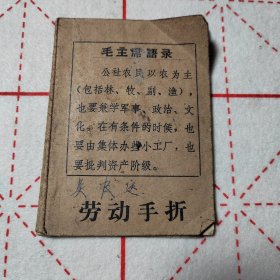 毛主席語录
公社农民以农为主
(包括林、牧、副、渔)，
也要兼学军事、政治、文
化。在有条件的时候，也
要由集体办些小工厂，也
要批判资产阶级。
劳动手折